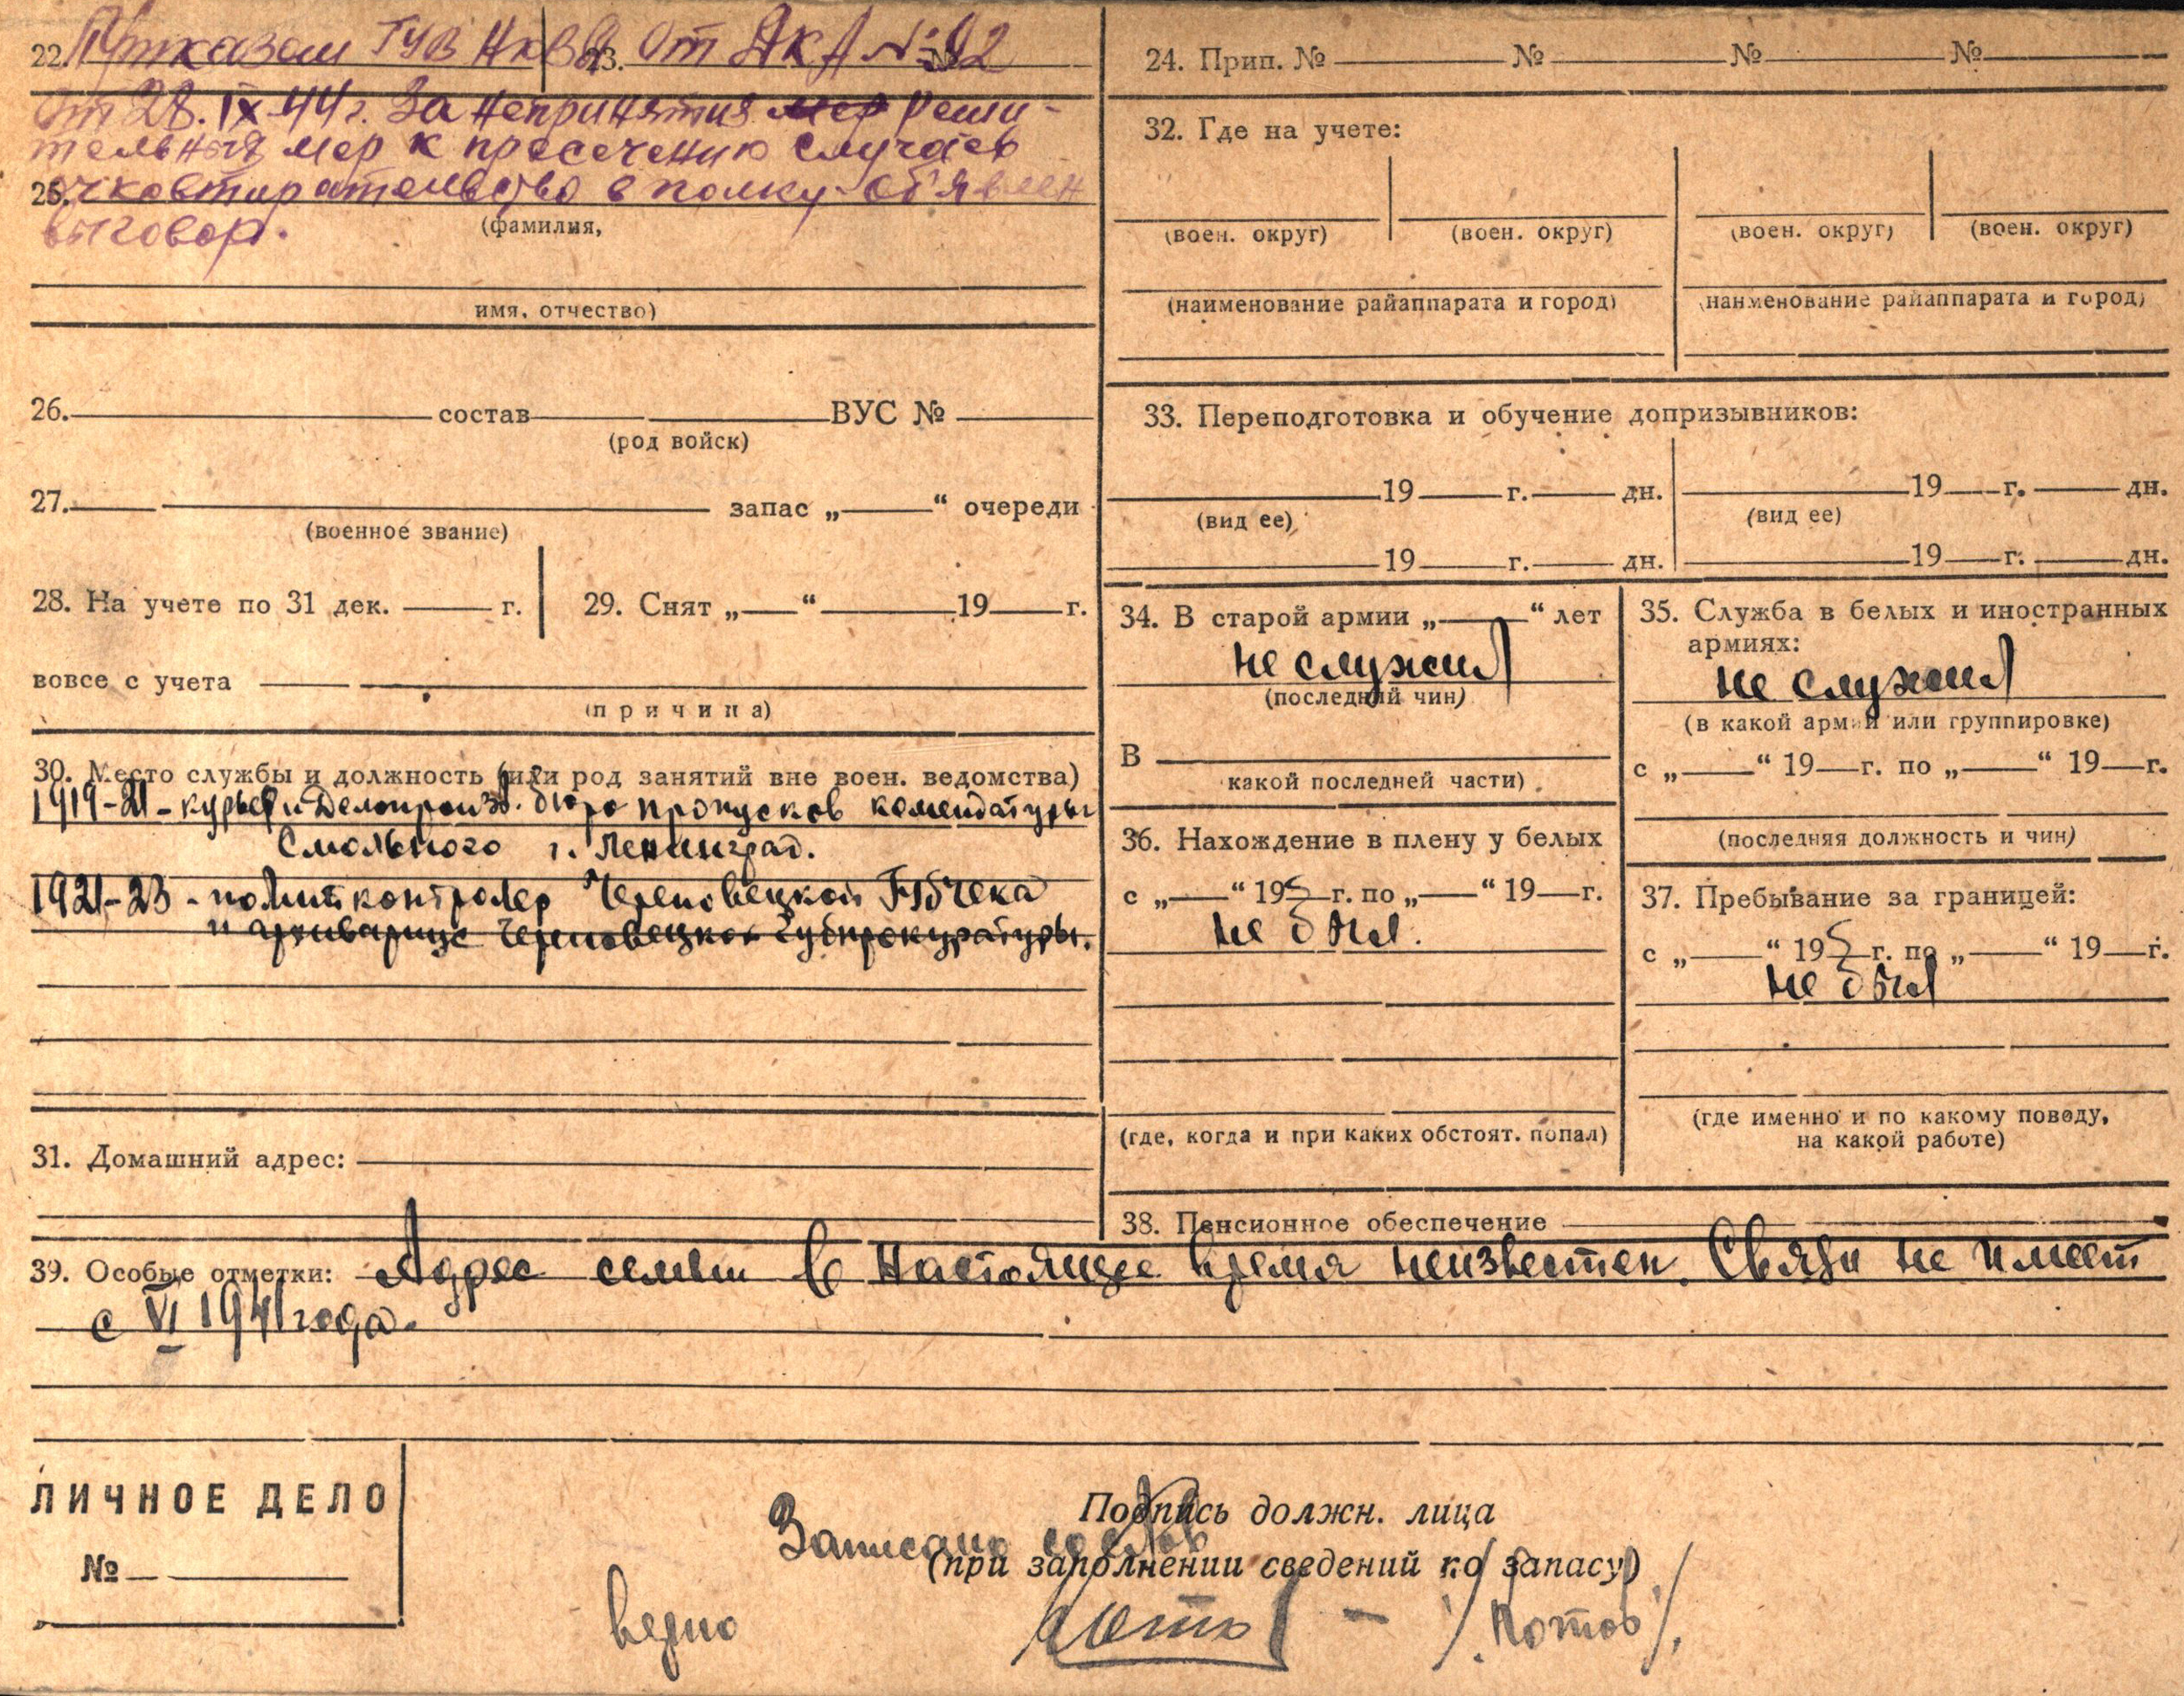 22. Приказом ГУВ НКВД 23. от ЯКА №92
от 28.IX.44г. За непринятия мер реши-
тельныя мер к пресечению случаев
25. очковтирательство в полку об'явлен
выговор.
(фамилия,
имя, отчество)
26. состав ВУС №
(род войск)
27. запас „ “ очереди
(военное звание)
28. На учете по 31 дек. г. 29. Снят „ “ 19 г.
вовсе с учета
(причина)
30. Место службы и должность (или род занятий вне воен. ведомства)
1919-21 - курьер и Делопроизв. бюро пропусков комендатуры
Смольного г. Ленинград.
1921-23 - политконтролер Череповецкой Губчека
и архивариус Череповецкой Губпрокуратуры.
31. Домашний адрес:
24. Прип. № № № №
32. Где на учете:
(воен. округ) (воен. округ) (воен. округ) (воен. округ)
(наименование райаппарата и город) (наименование райаппарата и город)
33. Переподготовка и обучение допризывников:
19 г. дн. 19 г. дн.
(вид ее) (вид ее)
19 г. дн. 19 г. дн.
34. В старой армии „ “ лет
не служил
(последний чин)
В
какой последней части)
35. Служба в белых и иностранных
армиях:
не служил
(в какой армии или группировке)
с „ “ 19 г. по „ “ 19 г.
(последняя должность и чин)
36. Нахождение в плену у белых
с „ “ 19 г. по „ “ 19 г.
не был.
(где, когда и при каких обстоят. попал)
37. Пребывание за границей:
с „ “ 19 г. по „ “ 19 г.
не был
(где именно и по какому поводу,
на какой работе)
38. Пенсионное обеспечение
39. Особые отметки: Адрес семьи в настоящее время неизвестен. Связи не имеет
с VI 1941 года.
ЛИЧНОЕ ДЕЛО
№
Подпись должн. лица
Записано со слов
(при заполнении сведений по запасу)
верно /Котов/